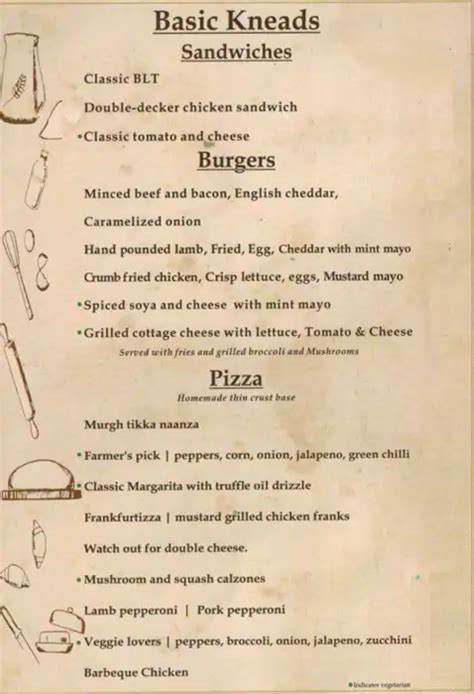 Basic Kneads
Sandwiches
Classic BLT
Double-decker chicken sandwich
•Classic tomato and cheese
Burgers
Minced beef and bacon, English cheddar,
Caramelized onion
Hand pounded lamb, Fried, Egg, Cheddar with mint mayo
Crumb fried chicken, Crisp lettuce, eggs, Mustard mayo
•Spiced soya and cheese with mint mayo
•Grilled cottage cheese with lettuce, Tomato & Cheese
Served with fries and grilled broccoli and Mushrooms
Pizza
Homemade thin crust base
Murgh tikka naanza
•Farmer's pick | peppers, corn, onion, jalapeno, green chilli
•Classic Margarita with truffle oil drizzle
Frankfurtizza | mustard grilled chicken franks
Watch out for double cheese.
•Mushroom and squash calzones
Lamb pepperoni | Pork pepperoni
•Veggie lovers | peppers, broccoli, onion, jalapeno, zucchini
Barbeque Chicken
•Indicates vegetarian